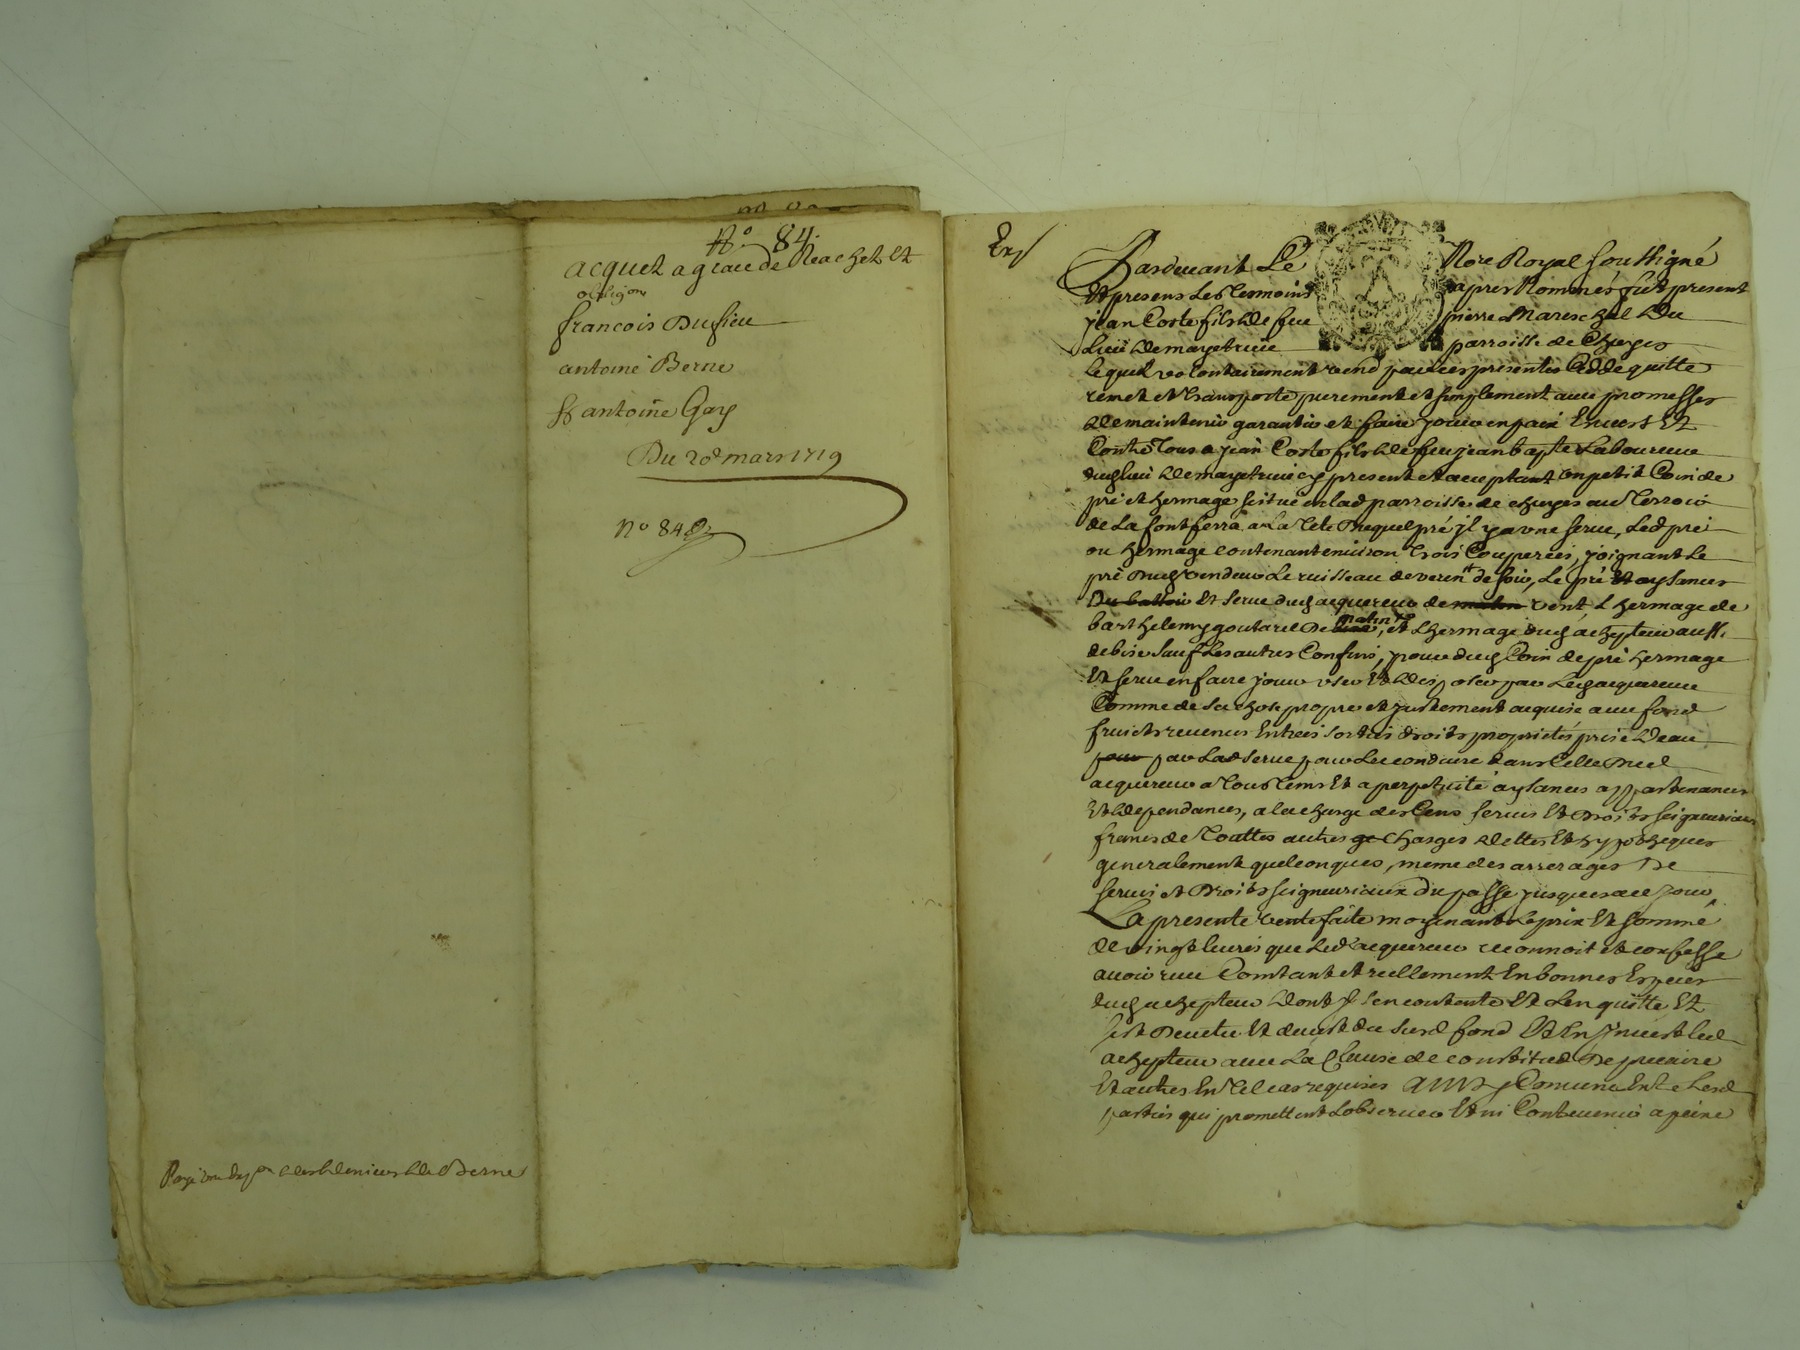 N° 84.
acquet a grace de Reachet et
obligon
francois Dusieu
antoine Berne
antoine Gay
Du 20e mars 1719
N° 848
des deniers de Berne
Exp
Pardevant Le Nore Royal soussigné
Et presens Les temoins apres Nommés fut present
jean Coste fils de feu pierre Mareschal du
Lieu de mayetruie parroisse de Chuyes
Lequel volontairement vend par ces presentes Cedde quitte
remet et transporte purement et simplement avec promesses
de maintenir garantir et faire jouir en paix Envers Et
Contre Tous a jean Coste fils de feu jean bapte Laboureur
dud lieu de mayetruie cy present et acceptant un petit Coin de
pré et hermage situé en lad parroisse de chuyes au Terroir
de La font ferra a La Tete Duquel pré jl y a une serve, Led pré
ou hermage contenant environ trois Couperées, joignant Le
pré Dud vendeur Le ruisseau de verin de soir, Le pré Et aysances
Du battoir Et serve dud acquereur de matin vent, L hermage de
matin
barthelemy goutarel De bise, et L hermage dud achepteur aussi
de bise sauf Les autres Confins, pour dud Coin de pré hermage
Et serve en faire jouir user Et disposer par Led acquereur
Comme de sa chose propre et justement acquise avec fond
fruicts revenus Entrées sorties droits proprietés prise d'eau
pour par Lad serve pour La conduire dans Celle Dud
acquereur a Tous tems Et a perpetuité aysances appartenances
Et dependances, a la charge des Cens servis Et Droits seigneuriaux
francs de Touttes autres ge Charges dettes Et hypotheques
generalement quelconques, meme des arrerages De
servis et Droits seigneuriaux du passé jusques a ce jour
La presente vente faite moyenant Le prix Et somme
de vingt livres que Led acquereur reconnoit et confesse
avoir reçu Comtant et reellement En bonnes Especes
dud achepteur dont jl s'en contente Et L'en quitte Et
s'est Devetu Et devest du susd fond Et En jnvest led
achepteur avec La Clause de constitut De precaire
Et autres En Tel cas requises Ainsy Convenu Entre Lesd
parties qui promettent L'observer Et ni Contrevenir a peine